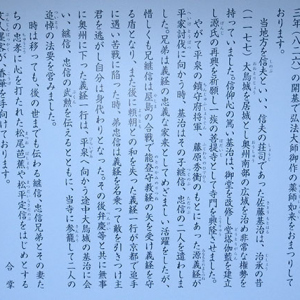 三年(八二六)の開基で弘法大師御作の薬師如来をおまつりして
おります。
当地方を信夫といい、信夫の荘司であった佐藤基治は、治承の昔
(一一七七)大鳥城を居城とし奥州南部の広域を治め非常な権勢を
持っていました。信仰心の篤い基治は、御堂を改修し堂塔伽藍を建立
し源氏の再興を祈願し一族の菩提寺として寺門を興隆させました。
やがて平泉の鎮守府将軍・藤原秀衡のもとにあった源義経が
平家討伐に向かう時、基治はその子継信、忠信の二人を遣わしま
した。兄弟は義経の忠義な家来としてめざましい活躍をしたが、
惜しくも兄継信は屋島の合戦で能登守教経の矢を受け義経を守
る盾となり、また後に頼朝との和を失った義経一行が京都で追手
に遇い苦戦に陥った時、弟忠信は義経を名乗って敵を引きつけ主
君を逃がし自分は身代わりとなった。その後弁慶等と共に無事
に奥州に下った義経一行は、平泉へ向かう途中大鳥城の基治に会
い、継信、忠信の武勲を伝えるとともに、当寺に参籠して二人の
追悼の法要を営みました。
時は移っても、後の世までも伝わる継信、忠信兄弟とその妻た
ちの忠孝に心を打たれた松尾芭蕉や松平定信をはじめとする
文人墨客が、香華を手向けております。
合掌